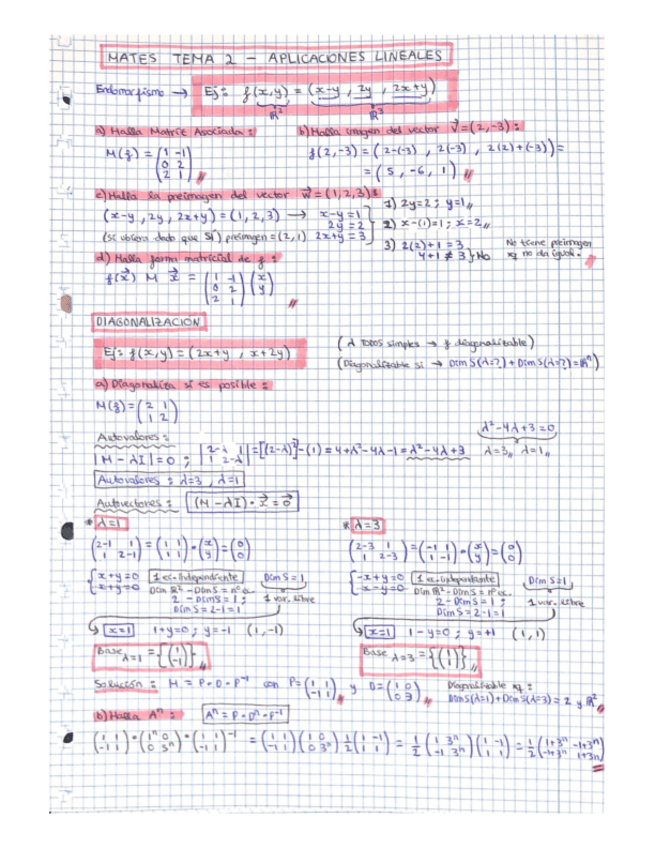 MATES TEMA 2 - APLICACIONES LINEALES
Endomorfismo → Ej: f(x,y) = (x-y , 2y , 2x+y)
ℝ² ℝ³
a) Halla Matriz Asociada:
M(f) = (1 -1 / 0 2 / 2 1)
b) Halla imagen del vector v⃗=(2,-3):
f(2,-3) = (2-(-3) , 2(-3) , 2(2)+(-3)) =
= (5 , -6 , 1)
c) Halla la preimagen del vector w⃗=(1,2,3):
(x-y , 2y , 2x+y) = (1, 2, 3) → x-y=1
2y=2
2x+y=3
(si ubiera dado que SÍ) preimagen = (2,1)
1) 2y=2 ; y=1
2) x-(1)=1 ; x=2
3) 2(2)+1=3
4+1≠3 } No
No tiene preimagen
xq no da igual.
d) Halla forma matricial de f:
f(x⃗) M x⃗ = (1 -1 / 0 2 / 2 1) (x / y)
DIAGONALIZACIÓN
Ej: f(x,y) = (2x+y , x+2y)
(λ todos simples → f diagonalizable)
(Diagonalizable si → Dim S(λ=?) + Dim S(λ=?) = ℝⁿ)
a) Diagonaliza si es posible:
M(f) = (2 1 / 1 2)
Autovalores:
|M-λI|=0 ; |2-λ 1 / 1 2-λ| = [(2-λ)²]-(1) = 4+λ²-4λ-1 = λ²-4λ+3
λ²-4λ+3=0
λ=3 λ=1
Autovalores: λ=3 , λ=1
Autovectores: (M-λI)·x⃗=0⃗
* λ=1
(2-1 1 / 1 2-1) = (1 1 / 1 1)·(x / y) = (0 / 0)
{x+y=0
x+y=0
1 ec. independiente
Dim ℝ² - Dim S = nº ec.
2 - Dim S = 1 ;
Dim S = 2-1 = 1
Dim S = 1
1 var. libre
x=1 1+y=0 ; y=-1 (1,-1)
Base λ=1 = {(1 / -1)}
* λ=3
(2-3 1 / 1 2-3) = (-1 1 / 1 -1)·(x / y) = (0 / 0)
{-x+y=0
-x-y=0
1 ec. independiente
Dim ℝ² - Dim S = nº ec.
2 - Dim S = 1 ;
Dim S = 2-1 = 1
Dim S = 1
1 var. libre
x=1 1-y=0 ; y=+1 (1,1)
Base λ=3 = {(1 / 1)}
Solución: M = P·D·P⁻¹ con P = (1 1 / -1 1) y D = (1 0 / 0 3)
Diagonalizable xq:
Dim S(λ=1) + Dim S(λ=3) = 2 y ℝ²
b) Halla Aⁿ: Aⁿ = P·Dⁿ·P⁻¹
(1 1 / -1 1)·(1ⁿ 0 / 0 3ⁿ)·(1 1 / -1 1)⁻¹ = (1 1 / -1 1)(1 0 / 0 3ⁿ) 1/2 (1 -1 / 1 1) = 1/2 (1 3ⁿ / -1 3ⁿ)(1 -1 / 1 1) = 1/2 (1+3ⁿ -1+3ⁿ / -1+3ⁿ 1+3ⁿ)